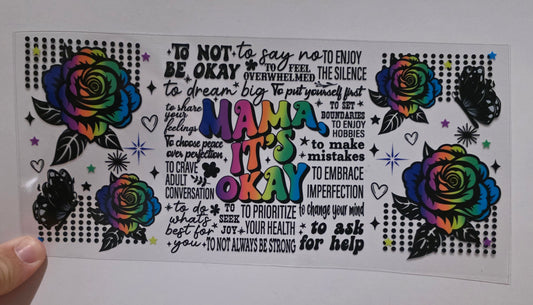 TO NOT
BE OKAY
to say no
TO ENJOY
THE SILENCE
TO FEEL
OVERWHELMED
to dream big
To put yourself first
to share
your
feelings
MAMA,
IT'S
OKAY
TO SET
BOUNDARIES
TO ENJOY
HOBBIES
To choose peace
over perfection
to make
mistakes
TO CRAVE
ADULT
CONVERSATION
TO EMBRACE
IMPERFECTION
to do
what's
best for
you
TO
SEEK
JOY
TO PRIORITIZE
YOUR HEALTH
to change your mind
TO NOT ALWAYS BE STRONG
to ask
for help